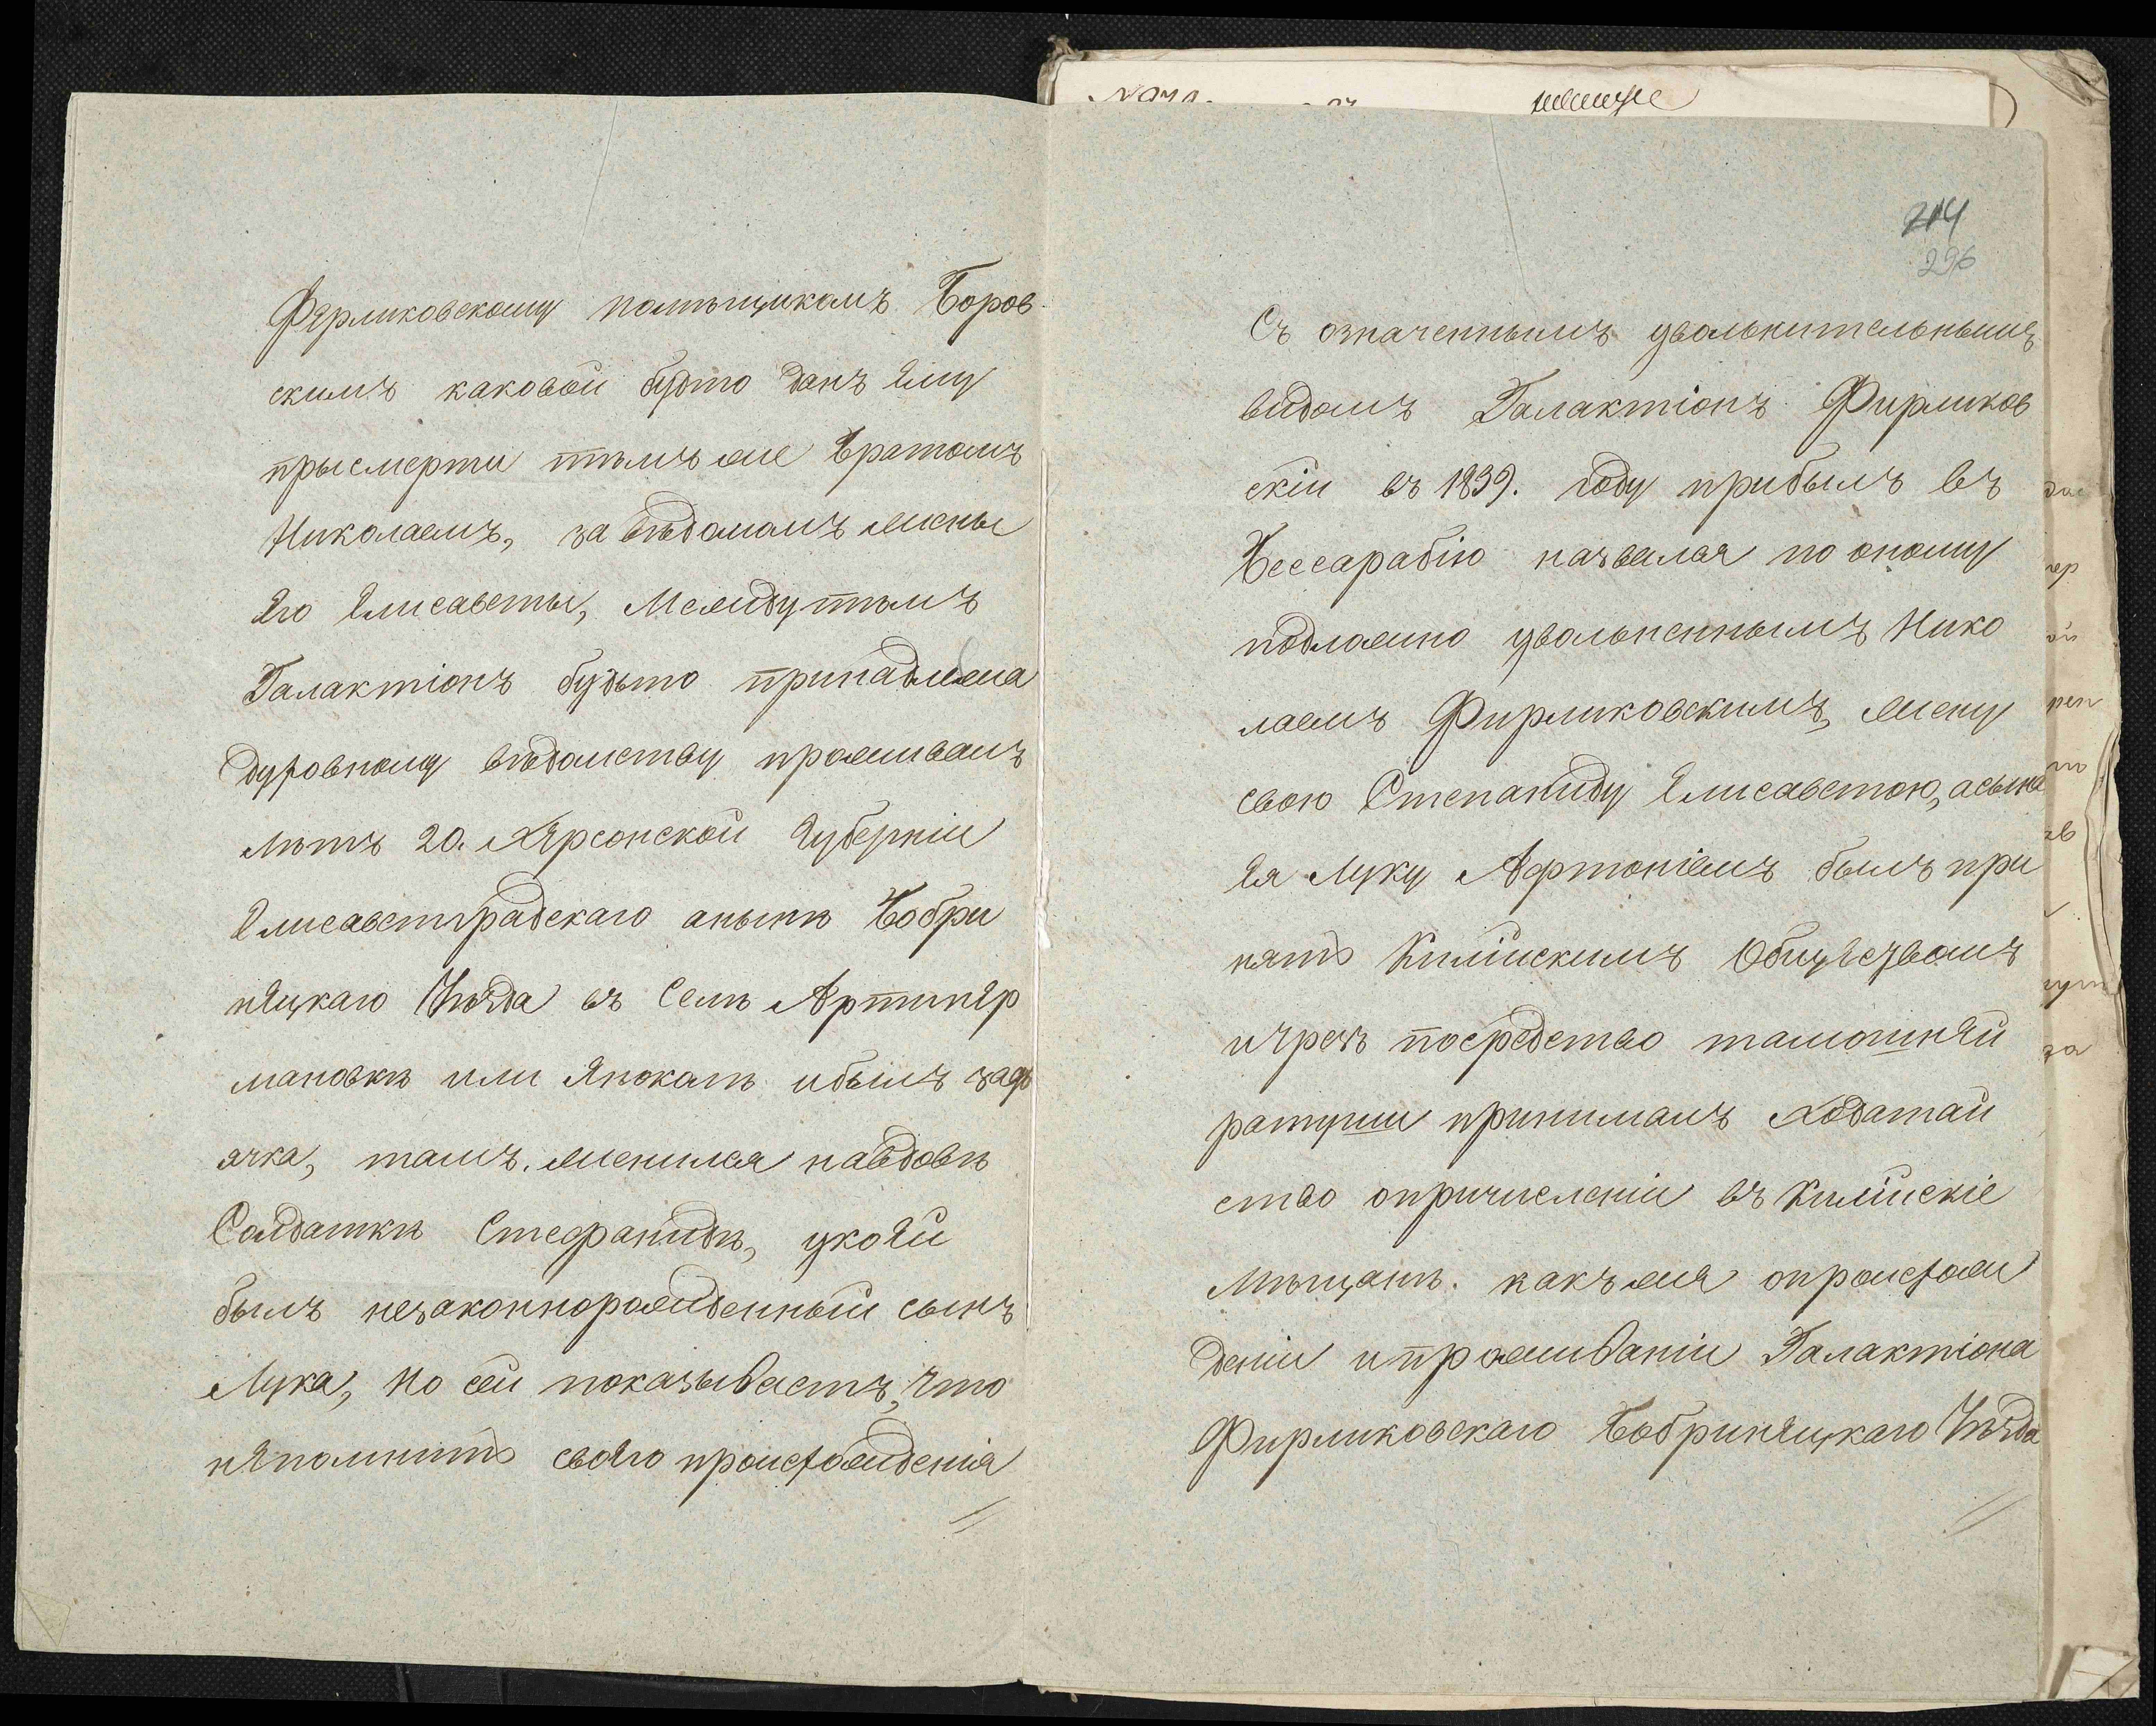 Ферликовскому помѣщикомъ Боров
скимъ каковой будто данъ Ему
присмерти тѣмъ же братомъ
Николаемъ, за вѣдомомъ жены
Его Елисаветы, Междутѣмъ
Галактіонъ будьто принадлежа
духовному вѣдомству проживалъ
лѣтъ 20. Херсонской Губерніи
Елисаветградскаго анынѣ Бобри
нецкаго Уѣзда въ Селѣ
мановкѣ или ибылъ задь
ячка, тамъ. женился навдовѣ
Солдаткѣ Стефанидѣ, укоей
былъ незаконнорожденный сынъ
Лука, но сей показываетъ, что
непомнитъ своего происхожденія
214
296
Съ означеннымъ увольнительнымъ
видомъ Галактіонъ Фирликов
скій въ 1839. году прибылъ въ
Бессарабію назвался по оному
подложно уволеннымъ Нико
лаемъ Фирликовскимъ, жену
свою Степаниду Елисаветою, асына
Ея Луку Афтоніемъ былъ при
нятъ Килійскимъ Обществомъ
ичрезъ посредство тамошней
ратуши принималъ ходатай
ство опричисленіи въ Килійскіе
Мѣщане. какъ же опроисхож
деніи ипроживаніи Галактіона
Фирликовскаго Бобринецкаго Уѣзда